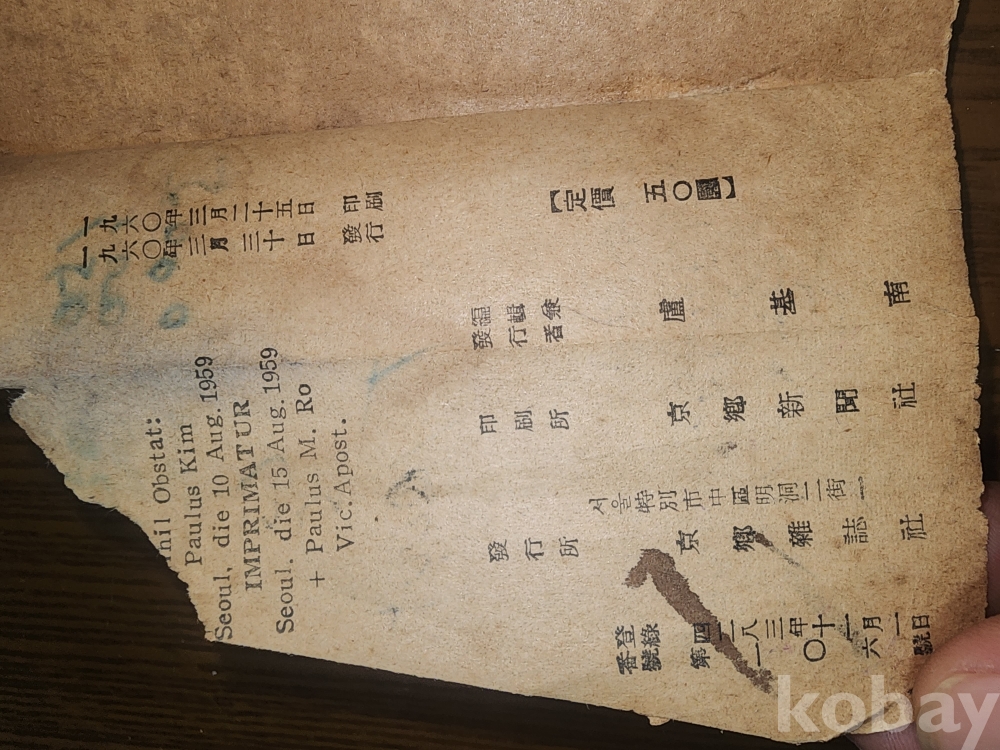 一九六〇年三月二十五日 印刷
一九六〇年三月三十日 發行
【定價 五〇圜】
hil Obstat:
Paulus Kim
Seoul, die 10 Aug. 1959
IMPRIMATUR
Seoul. die 15 Aug. 1959
+ Paulus M. Ro
Vic. Apost.
編輯兼
發行者 盧基南
印刷所 京鄕新聞社
서울特別市中區明洞二街一
發行所 京鄕雜誌社
登錄 四二八三年十一月一日
番號 第一〇六號
kobay